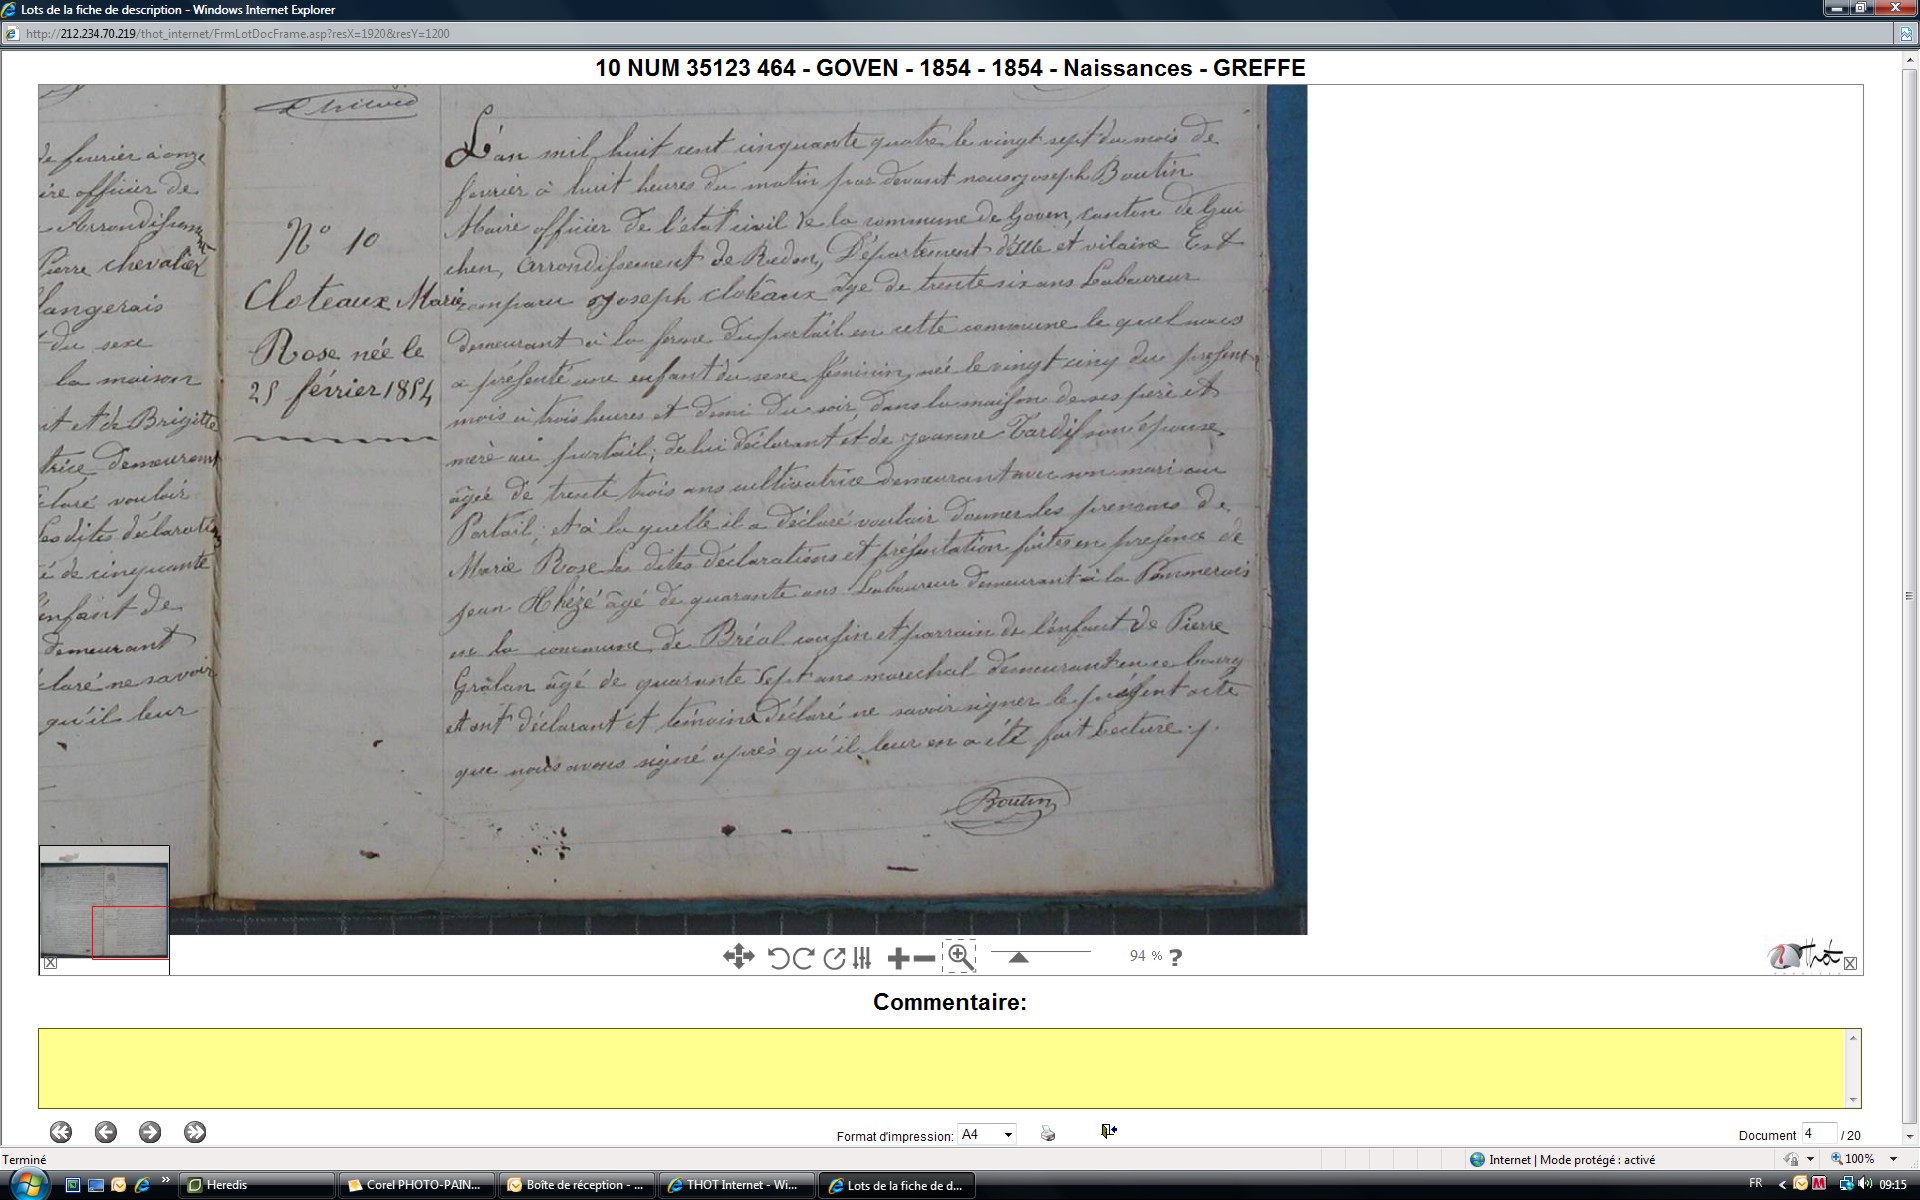 Lots de la fiche de description - Windows Internet Explorer
http://212.234.70.219/thot_internet/FrmLotDocFrame.asp?resX=1920&resY=1200
10 NUM 35123 464 - GOVEN - 1854 - 1854 - Naissances - GREFFE
de fevrier à onze
officier de
Arrondissem
Pierre chevalier
langerais
du sexe
la maison
et de Brigitte
demeurant
claré vouloir
Les dites déclarati
é de cinquante
enfant de
demeurant
claré ne savoir
qu'il leur
N° 10
Cloteaux Marie
Rose née le
25 février 1854
L'an mil huit cent cinquante quatre le vingt sept du mois de
fevrier à huit heures du matin par devant nous joseph Boutin
Maire officier de l'état civil de la commune de Goven, canton de Gui
chen, arrondissement de Redon, Département d'Ille et vilaine Est
comparu joseph cloteaux age de trente six ans Laboureur
demeurant à la ferme du portail en cette commune le quel nous
a présenté une enfant du sexe féminin, née le vingt cinq du present
mois à trois heures et demi du soir, dans la maison de ses père et
mère au portail; de lui déclarant et de jeanne Tardif son épouse,
âgée de trente trois ans cultivatrice demeurant avec son mari au
Portail; et à la quelle il a déclaré vouloir donner les prenoms de
Marie Rose Les dites déclarations et présentation faites en presence de
jean âgé de quarante ans Laboureur demeurant à la Pommerais
en la commune de Bréal cousin et parrain de l'enfant de Pierre
Grâlan âgé de quarante sept ans marechal demeurant en ce bourg
et ont déclarant et témoins déclaré ne savoir signer le présent acte
que nous avons signé après qu'il leur en a été fait Lecture.
Boutin
94 % ?
Thot
Commentaire:
Format d'impression: A4
Document 4 / 20
Terminé
Internet | Mode protégé : activé
100%
Heredis
Corel PHOTO-PAIN...
Boîte de réception - ...
THOT Internet - Wi...
Lots de la fiche de d...
FR
09:15